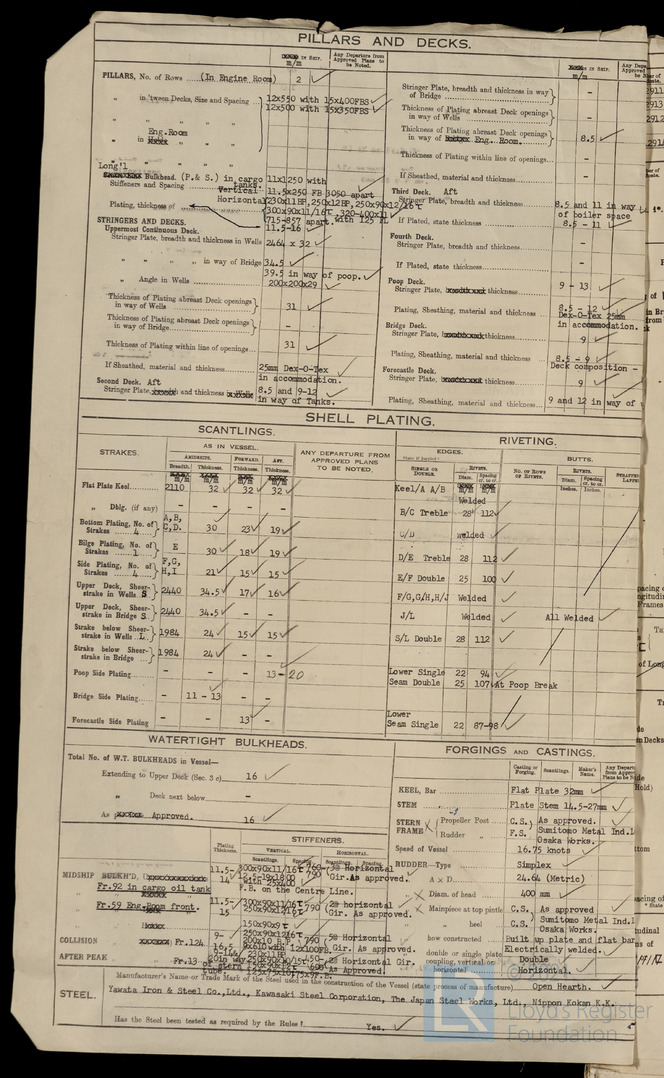 PILLARS AND DECKS.
m/m
Any Departure from Approved Plans to be Noted.
PILLARS, No. of Rows (In Engine Room) 2
" in 'tween Decks, Size and Spacing 12x550 with 15x400FBS
12x500 with 15x350FBS
Eng.Room
" in
Long'l
Bulkhead. (P.& S.) in cargo tanks. 11x1250 with
Stiffeners and Spacing Vertical 11.5x250 FB 3050 apart
Horizontal 230x11BP,250x12BP,250x90x12/16t
Plating, thickness of 300x90x11/16t
715-857 apart.
STRINGERS AND DECKS. 11.5-16
Uppermost Continuous Deck.
Stringer Plate, breadth and thickness in Wells 2464 x 32
" " " " in way of Bridge 34.5
39.5 in way of poop.
" Angle in Wells 200x200x29
Thickness of Plating abreast Deck openings in way of Wells 31
Thickness of Plating abreast Deck openings in way of Bridge -
Thickness of Plating within line of openings 31
If Sheathed, material and thickness 25mm Dex-O-Tex
in accommodation.
Second Deck. Aft
Stringer Plate, and thickness 8.5 and 9-12
in way of Tanks.
m/m
Stringer Plate, breadth and thickness in way of Bridge -
Thickness of Plating abreast Deck openings in way of Wells -
Thickness of Plating abreast Deck openings in way of Eng. Room. 8.5
Thickness of Plating within line of openings -
If Sheathed, material and thickness -
Third Deck. Aft
Stringer Plate, breadth and thickness 8.5 and 11 in way
of boiler space
If Plated, state thickness 8.5 - 11
Fourth Deck.
Stringer Plate, breadth and thickness -
If Plated, state thickness -
Poop Deck.
Stringer Plate, thickness 9 - 13
Plating, Sheathing, material and thickness 8.5 - 12
Dex-O-Tex 25mm
in accommodation.
Bridge Deck.
Stringer Plate, thickness 9
Plating, Sheathing, material and thickness 8.5 - 9
Deck composition -
Forecastle Deck.
Stringer Plate, thickness 9
Plating, Sheathing, material and thickness 9 and 12 in way of
SHELL PLATING.
SCANTLINGS.
STRAKES.
AS IN VESSEL.
AMIDSHIPS. FORWARD. AFT.
Breadth. Thickness. Thickness. Thickness.
m/m m/m m/m m/m
ANY DEPARTURE FROM APPROVED PLANS TO BE NOTED.
Flat Plate Keel 2110 32 32 32
" Dblg. (if any) - - - -
Bottom Plating, No. of Strakes 4 A,B,C,D. 30 23 19
Bilge Plating, No. of Strakes 1 E 30 18 19
Side Plating, No. of Strakes 4 F,G,H,I 21 15 15
Upper Deck, Sheerstrake in Wells S 2440 34.5 17 16
Upper Deck, Sheerstrake in Bridge S 2440 34.5 - -
Strake below Sheerstrake in Wells L 1984 24 15 15
Strake below Sheerstrake in Bridge 1984 24 - -
Poop Side Plating - - - 13-20
Bridge Side Plating - 11 - 13 - -
Forecastle Side Plating - - 13 -
RIVETING.
EDGES.
BUTTS.
SINGLE OR DOUBLE.
RIVETS.
Diam. Spacing cr. to cr.
No. OF ROWS OF RIVETS.
RIVETS.
Diam. Spacing cr. to cr.
Inches. Inches.
Keel/A A/B Welded
B/C Treble 28 112
C/D welded
D/E Treble 28 112
E/F Double 25 100
F/G,G/H,H/J Welded
J/L Welded All Welded
S/L Double 28 112
Lower Single 22 94
Seam Double 25 107 At Poop Break
Lower
Seam Single 22 87-98
WATERTIGHT BULKHEADS.
Total No. of W.T. BULKHEADS in Vessel—
Extending to Upper Deck (Sec. 3 c) 16
" Deck next below -
As Approved. 16
STIFFENERS.
Plating Thickness.
VERTICAL. HORIZONTAL.
Scantlings. Spacing. Scantlings. Spacing.
MIDSHIP BULKH'D,
Fr.92 in cargo oil tank
11.5-14 300x90x11/16t 790
Horizontal
Gir. As approved.
F.B. on the Centre Line.
Fr.59 Eng.Room front.
11.5-15 300x90x11/16t
250x90x12/16t 790 Horizontal
Gir. As approved.
COLLISION Fr.124
150x90x9t
250x90x12/16t
200x10 B.P. 790 Horizontal
Gir. As approved.
AFTER PEAK Fr.13
Horizontal Gir.
As Approved.
FORGINGS AND CASTINGS.
Casting or Forging. Scantlings. Maker's Name. Any Departure from Approved Plans to be Noted
KEEL, Bar Flat Plate 32mm
STEM Plate Stem 14.5-27mm
STERN FRAME Propeller Post C.S. As approved.
Rudder " F.S. Sumitomo Metal Ind.L
Osaka Works.
Speed of Vessel 16.75 knots
RUDDER—Type Simplex
" A x D 24.64 (Metric)
" Diam. of head 400 mm
" Mainpiece at top pintle C.S. As approved
" " heel C.S. Sumitomo Metal Ind.
Osaka Works.
" how constructed Built up plate and flat bar
Electrically welded.
" double or single plate Double
" coupling, vertical or horizontal Horizontal.
STEEL.
Manufacturer's Name or Trade Mark of the Steel used in the construction of the Vessel (state process of manufacture) Open Hearth.
Yawata Iron & Steel Co.,Ltd., Kawasaki Steel Corporation, The Japan Steel Works, Ltd., Nippon Kokan K.K.
Has the Steel been tested as required by the Rules? Yes.
Lloyd's Register
Foundation